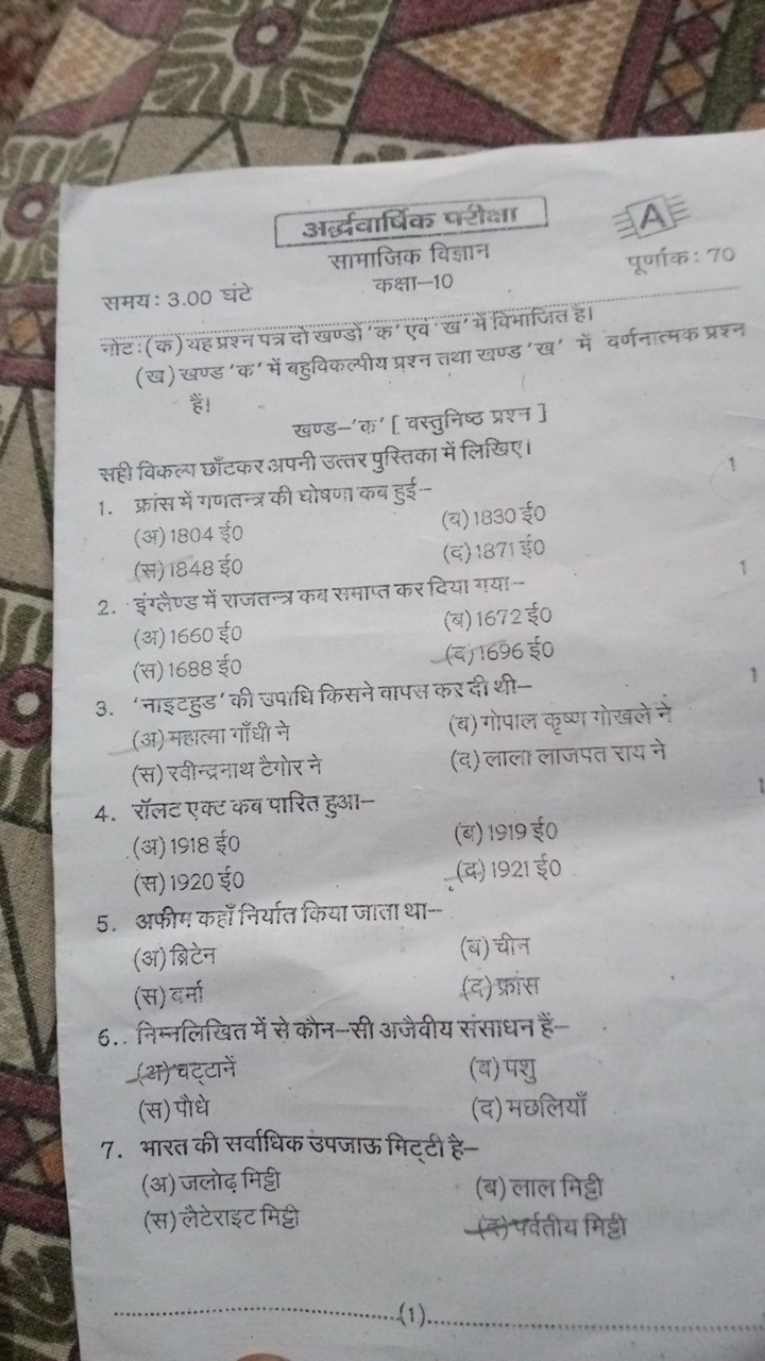 अर्द्धवार्षिक परीक्षा
A
सामाजिक विज्ञान
समय: 3.00 घंटे
कक्षा–10
पूर्णांक: 70
नोट:(क) यह प्रश्न पत्र दो खण्डों ‘क’ एवं ‘ख’ में विभाजित है।
(ख) खण्ड ‘क’ में बहुविकल्पीय प्रश्न तथा खण्ड ‘ख’ में वर्णनात्मक प्रश्न
हैं।
खण्ड–‘क’ [ वस्तुनिष्ठ प्रश्न ]
सही विकल्प छाँटकर अपनी उत्तर पुस्तिका में लिखिए।
1. फ्रांस में गणतन्त्र की घोषणा कब हुई– 1
(अ) 1804 ई0 (ब) 1830 ई0
(स) 1848 ई0 (द) 1871 ई0
2. इंग्लैण्ड में राजतन्त्र कब समाप्त कर दिया गया– 1
(अ) 1660 ई0 (ब) 1672 ई0
(स) 1688 ई0 (द) 1696 ई0
3. ‘नाइटहुड’ की उपाधि किसने वापस कर दी थी– 1
(अ) महात्मा गाँधी ने (ब) गोपाल कृष्ण गोखले ने
(स) रवीन्द्रनाथ टैगोर ने (द) लाला लाजपत राय ने
4. रॉलट एक्ट कब पारित हुआ– 1
(अ) 1918 ई0 (ब) 1919 ई0
(स) 1920 ई0 (द) 1921 ई0
5. अफीम कहाँ निर्यात किया जाता था–
(अ) ब्रिटेन (ब) चीन
(स) बर्मा (द) फ्रांस
6. निम्नलिखित में से कौन–सी अजैवीय संसाधन हैं–
(अ) चट्टानें (ब) पशु
(स) पौधे (द) मछलियाँ
7. भारत की सर्वाधिक उपजाऊ मिट्टी है–
(अ) जलोढ़ मिट्टी (ब) लाल मिट्टी
(स) लैटेराइट मिट्टी (द) पर्वतीय मिट्टी
(1)